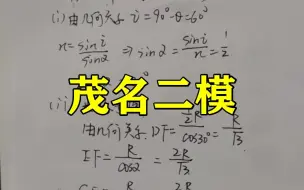 (i) 由几何关系 i=90°-θ=60°
n=sin i/sin2 ⇒ sin2=sin i/n=1/2
茂名二模
(ii)
由几何关系 DF=½R/cos30°=R/√3
EF=R/cos2=2R/√3